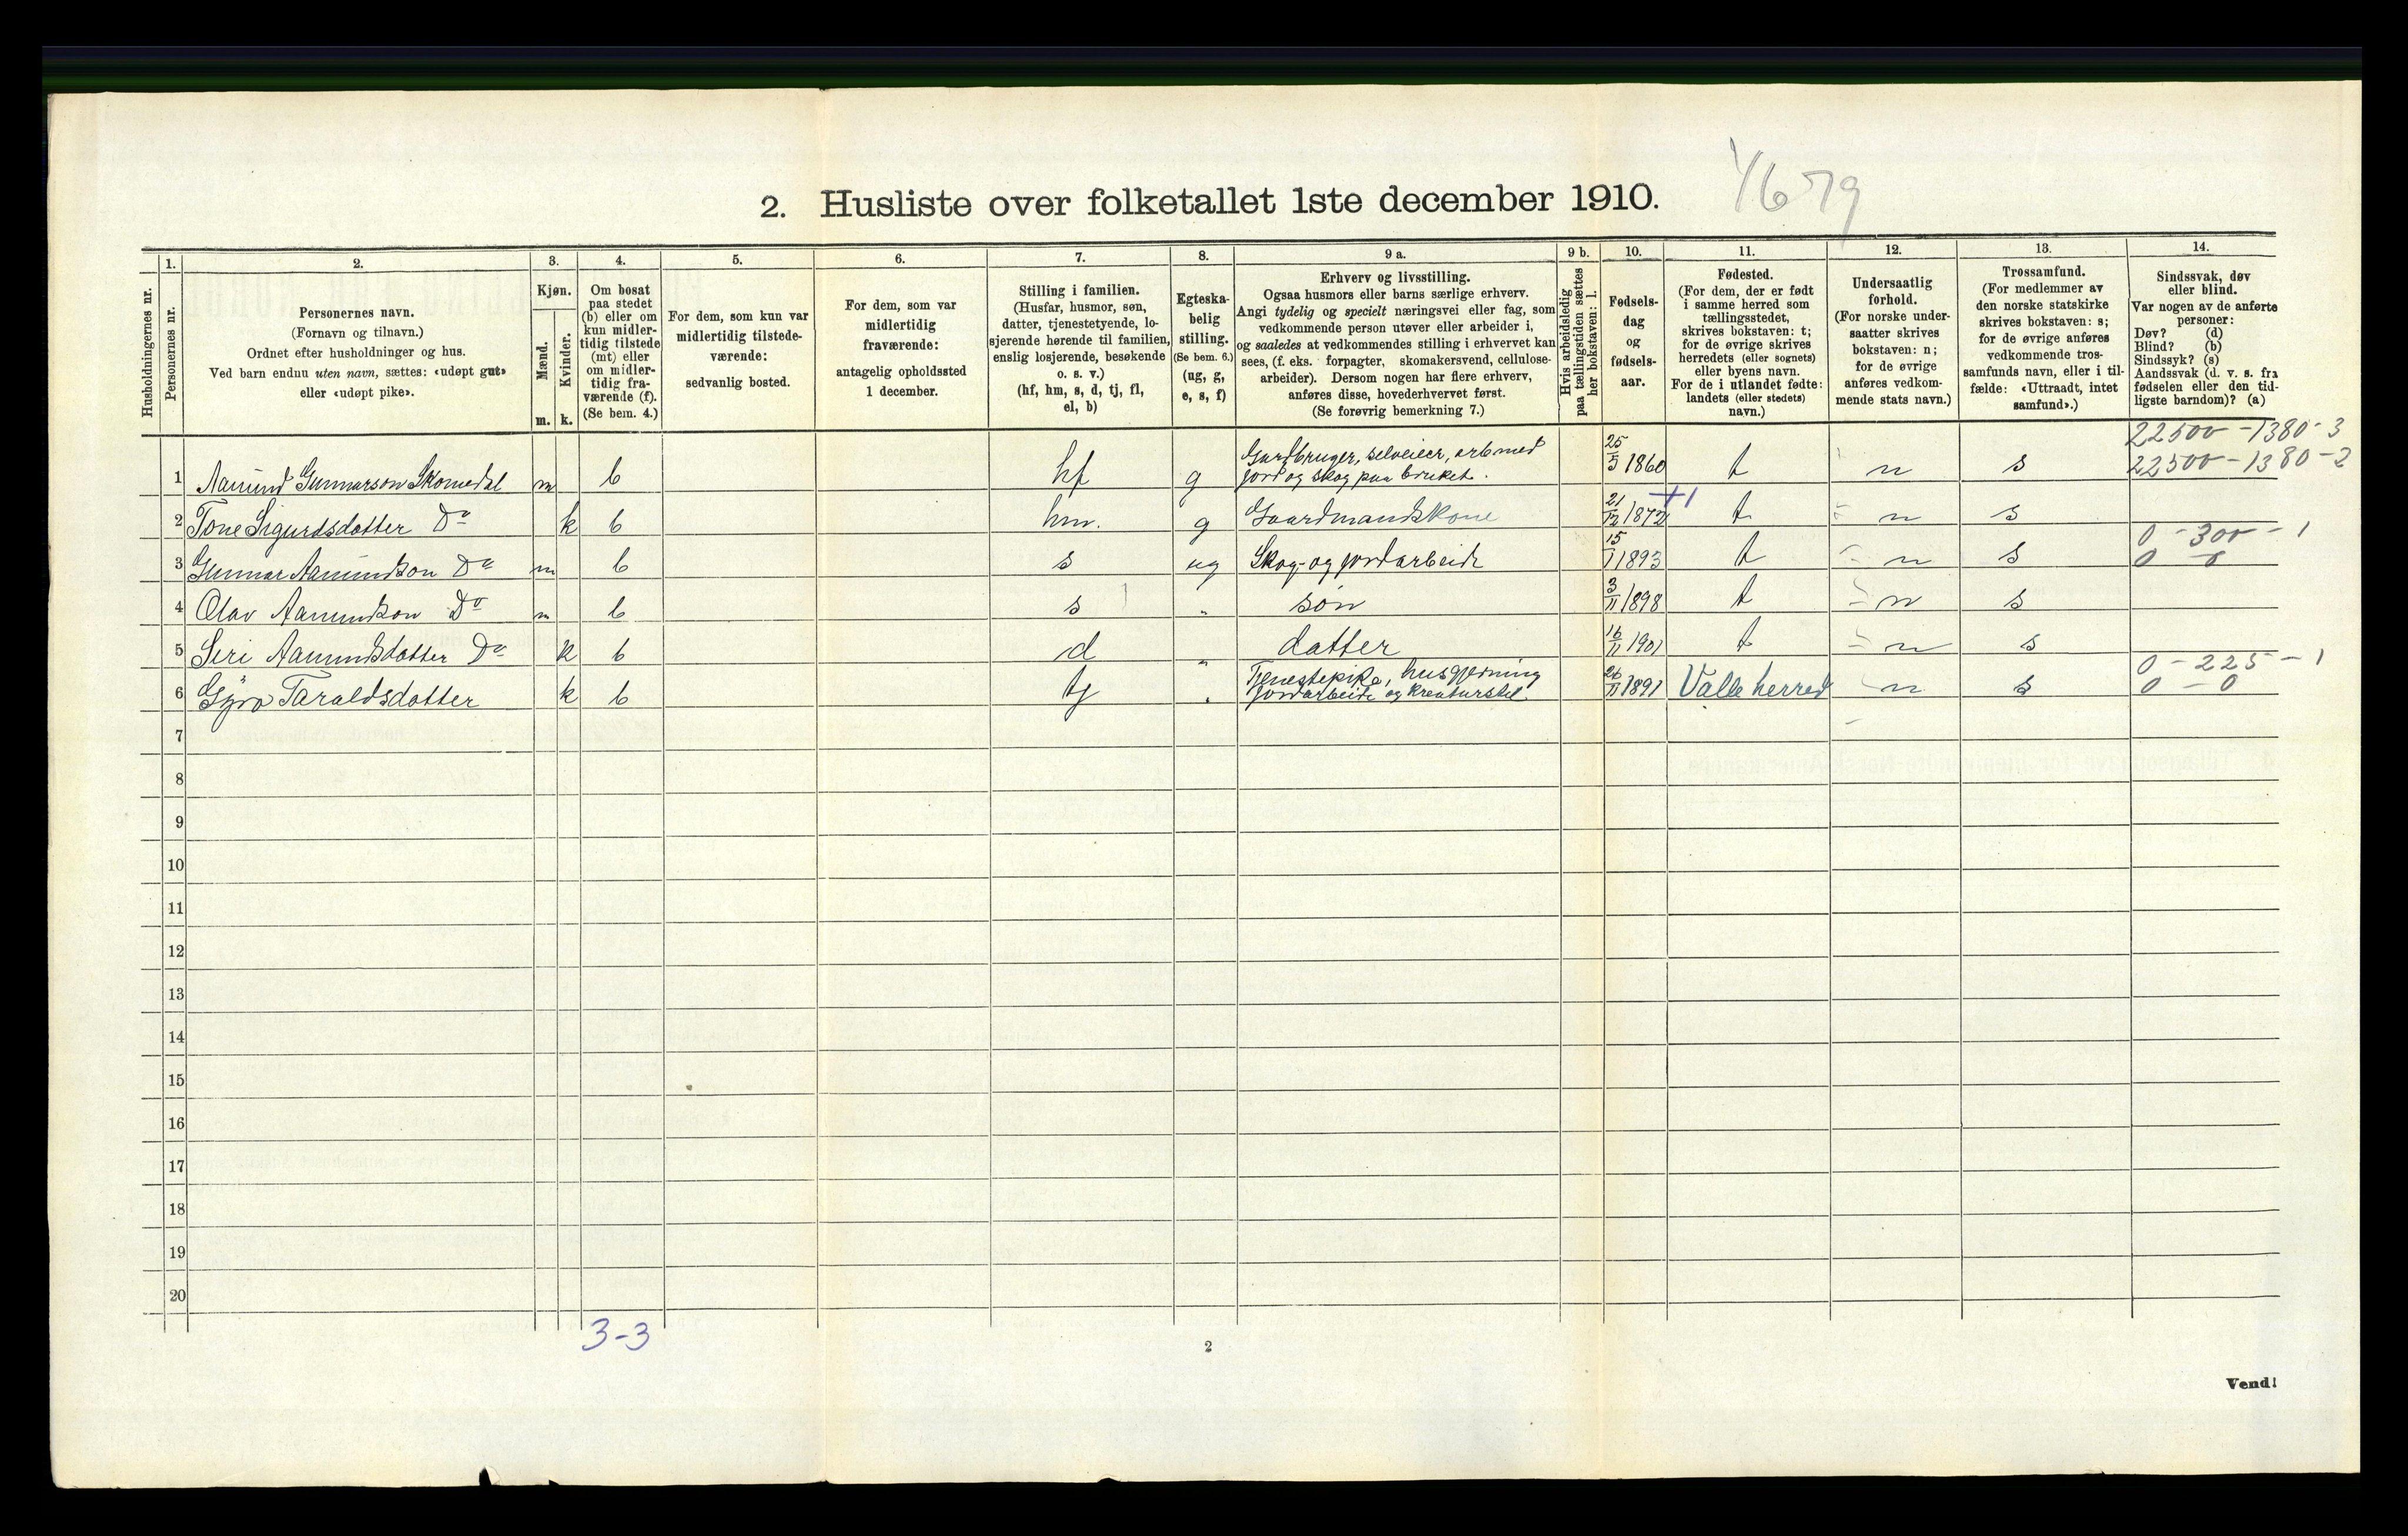 2. Husliste over folketallet 1ste december 1910.
1.
2.
3.
4.
5.
6.
7.
8.
9 a.
9 b.
10.
11.
12.
13.
14.
Husholdningernes nr.
Personernes nr.
Personernes navn.
(Fornavn og tilnavn.)
Ordnet efter husholdninger og hus.
Ved barn endnu uten navn, sættes: «udøpt gut»
eller «udøpt pike».
Kjøn.
Mænd.
Kvinder.
m. k.
Om bosat
paa stedet
(b) eller om
kun midler-
tidig tilstede
(mt) eller
om midler-
tidig fra-
værende (f).
(Se bem. 4.)
For dem, som kun var
midlertidig tilstede-
værende:
sedvanlig bosted.
For dem, som var
midlertidig
fraværende:
antagelig opholdssted
1 december.
Stilling i familien.
(Husfar, husmor, søn,
datter, tjenestetyende, lo-
sjerende hørende til familien,
enslig losjerende, besøkende
o. s. v.)
(hf, hm, s, d, tj, fl,
el, b)
Egteska-
belig
stilling.
(Se bem. 6.)
(ug, g,
e, s, f)
Erhverv og livsstilling.
Ogsaa husmors eller barns særlige erhverv.
Angi tydelig og specielt næringsvei eller fag, som
vedkommende person utøver eller arbeider i,
og saaledes at vedkommendes stilling i erhvervet kan
sees, (f. eks. forpagter, skomakersvend, cellulose-
arbeider). Dersom nogen har flere erhverv,
anføres disse, hovederhvervet først.
(Se forøvrig bemerkning 7.)
Hvis arbeidsledig
paa tællingstiden sættes
her bokstaven: l.
Fødsels-
dag
og
fødsels-
aar.
Fødested.
(For dem, der er født
i samme herred som
tællingsstedet,
skrives bokstaven: t;
for de øvrige skrives
herredets (eller sognets)
eller byens navn.
For de i utlandet fødte:
landets (eller stedets)
navn.)
Undersaatlig
forhold.
(For norske under-
saatter skrives
bokstaven: n;
for de øvrige
anføres vedkom-
mende stats navn.)
Trossamfund.
(For medlemmer av
den norske statskirke
skrives bokstaven: s;
for de øvrige anføres
vedkommende tros-
samfunds navn, eller i til-
fælde: «Uttraadt, intet
samfund».)
Sindssvak, døv
eller blind.
Var nogen av de anførte
personer:
Døv? (d)
Blind? (b)
Sindssyk? (s)
Aandssvak (d. v. s. fra
fødselen eller den tid-
ligste barndom)? (a)
22500 - 1380 - 3
22500 - 1380 - 2
1 Aamund Gunnarson Skomedal m b hf g Gardbruger, selveier, arb med
jord og skog paa bruket. 25/5 1860 t n s
2 Tone Sigurdsdatter Do k b hm. g Gaardmandskone 21/12 1872 t n s
0 - 300 - 1
3 Gunnar Aamundson Do m b s ug Skog- og jordarbeide 15/1 1893 t n s 0 - 0
4 Olav Aamundson Do m b s " søn 3/11 1898 t n s
5 Siri Aamundsdatter Do k b d " datter 16/11 1901 t n s
0 - 225 - 1
6 Gyro Taraldsdatter k b tj " Tjenestepike, husgjerning
jordarbeide og kreaturstel 26/11 1891 Valle herred n s 0 - 0
7
8
9
10
11
12
13
14
15
16
17
18
19
20
3-3
2
Vend!